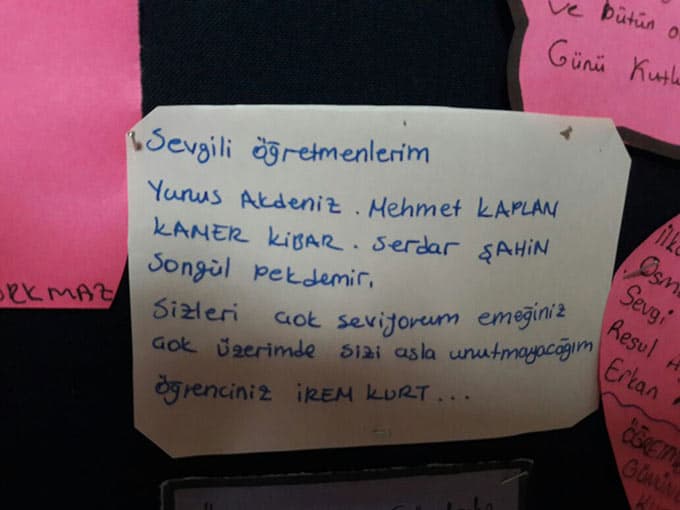 ve bütün
Günü Kutlu
Sevgili öğretmenlerim
Yunus Akdeniz . Mehmet KAPLAN
KAMER KİBAR . Serdar ŞAHİN
Songül Pekdemir.
Sizleri çok seviyorum emeğiniz
çok üzerimde sizi asla unutmayacağım
öğrenciniz İREM KURT...
ORKMAZ
Sevgi
Resul
Erkan